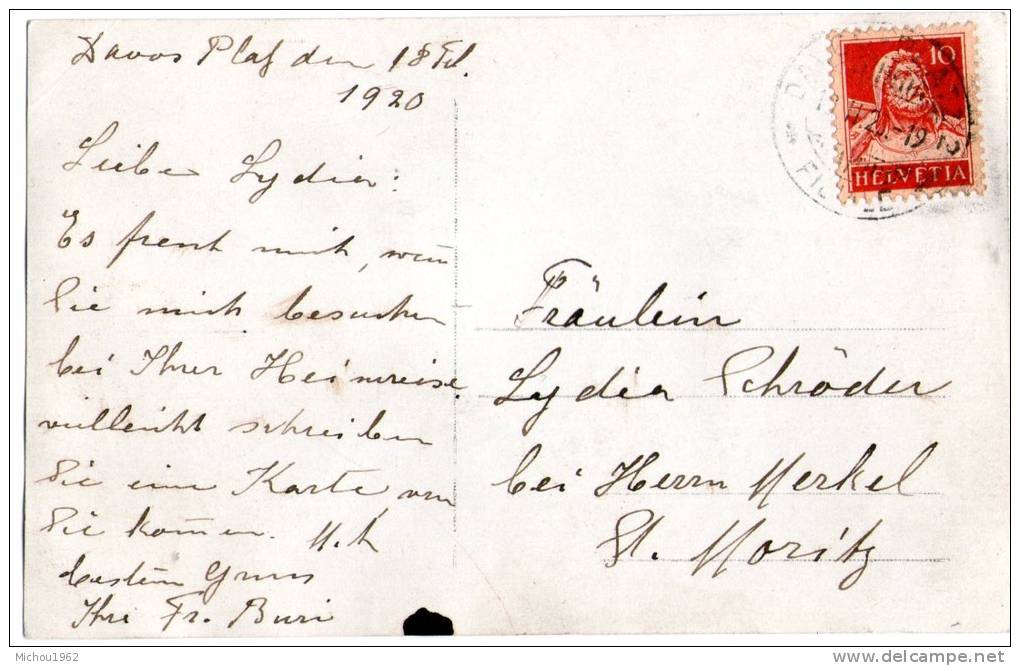 Davos Platz den 18 Feb.
1920
Liebe Lydia!
Es freut mich, wen̄
Sie mich besuchen
bei Ihrer Heimreise.
villeicht schreiben
Sie eine Karte wen
Sie kom̄en. Mit
besten Gruss
Ihre Fr. Buri
10
HELVETIA
Fräulein
Lydia Schröder
bei Herrn Merkel
St. Moritz
Michou1962
delcampe.net